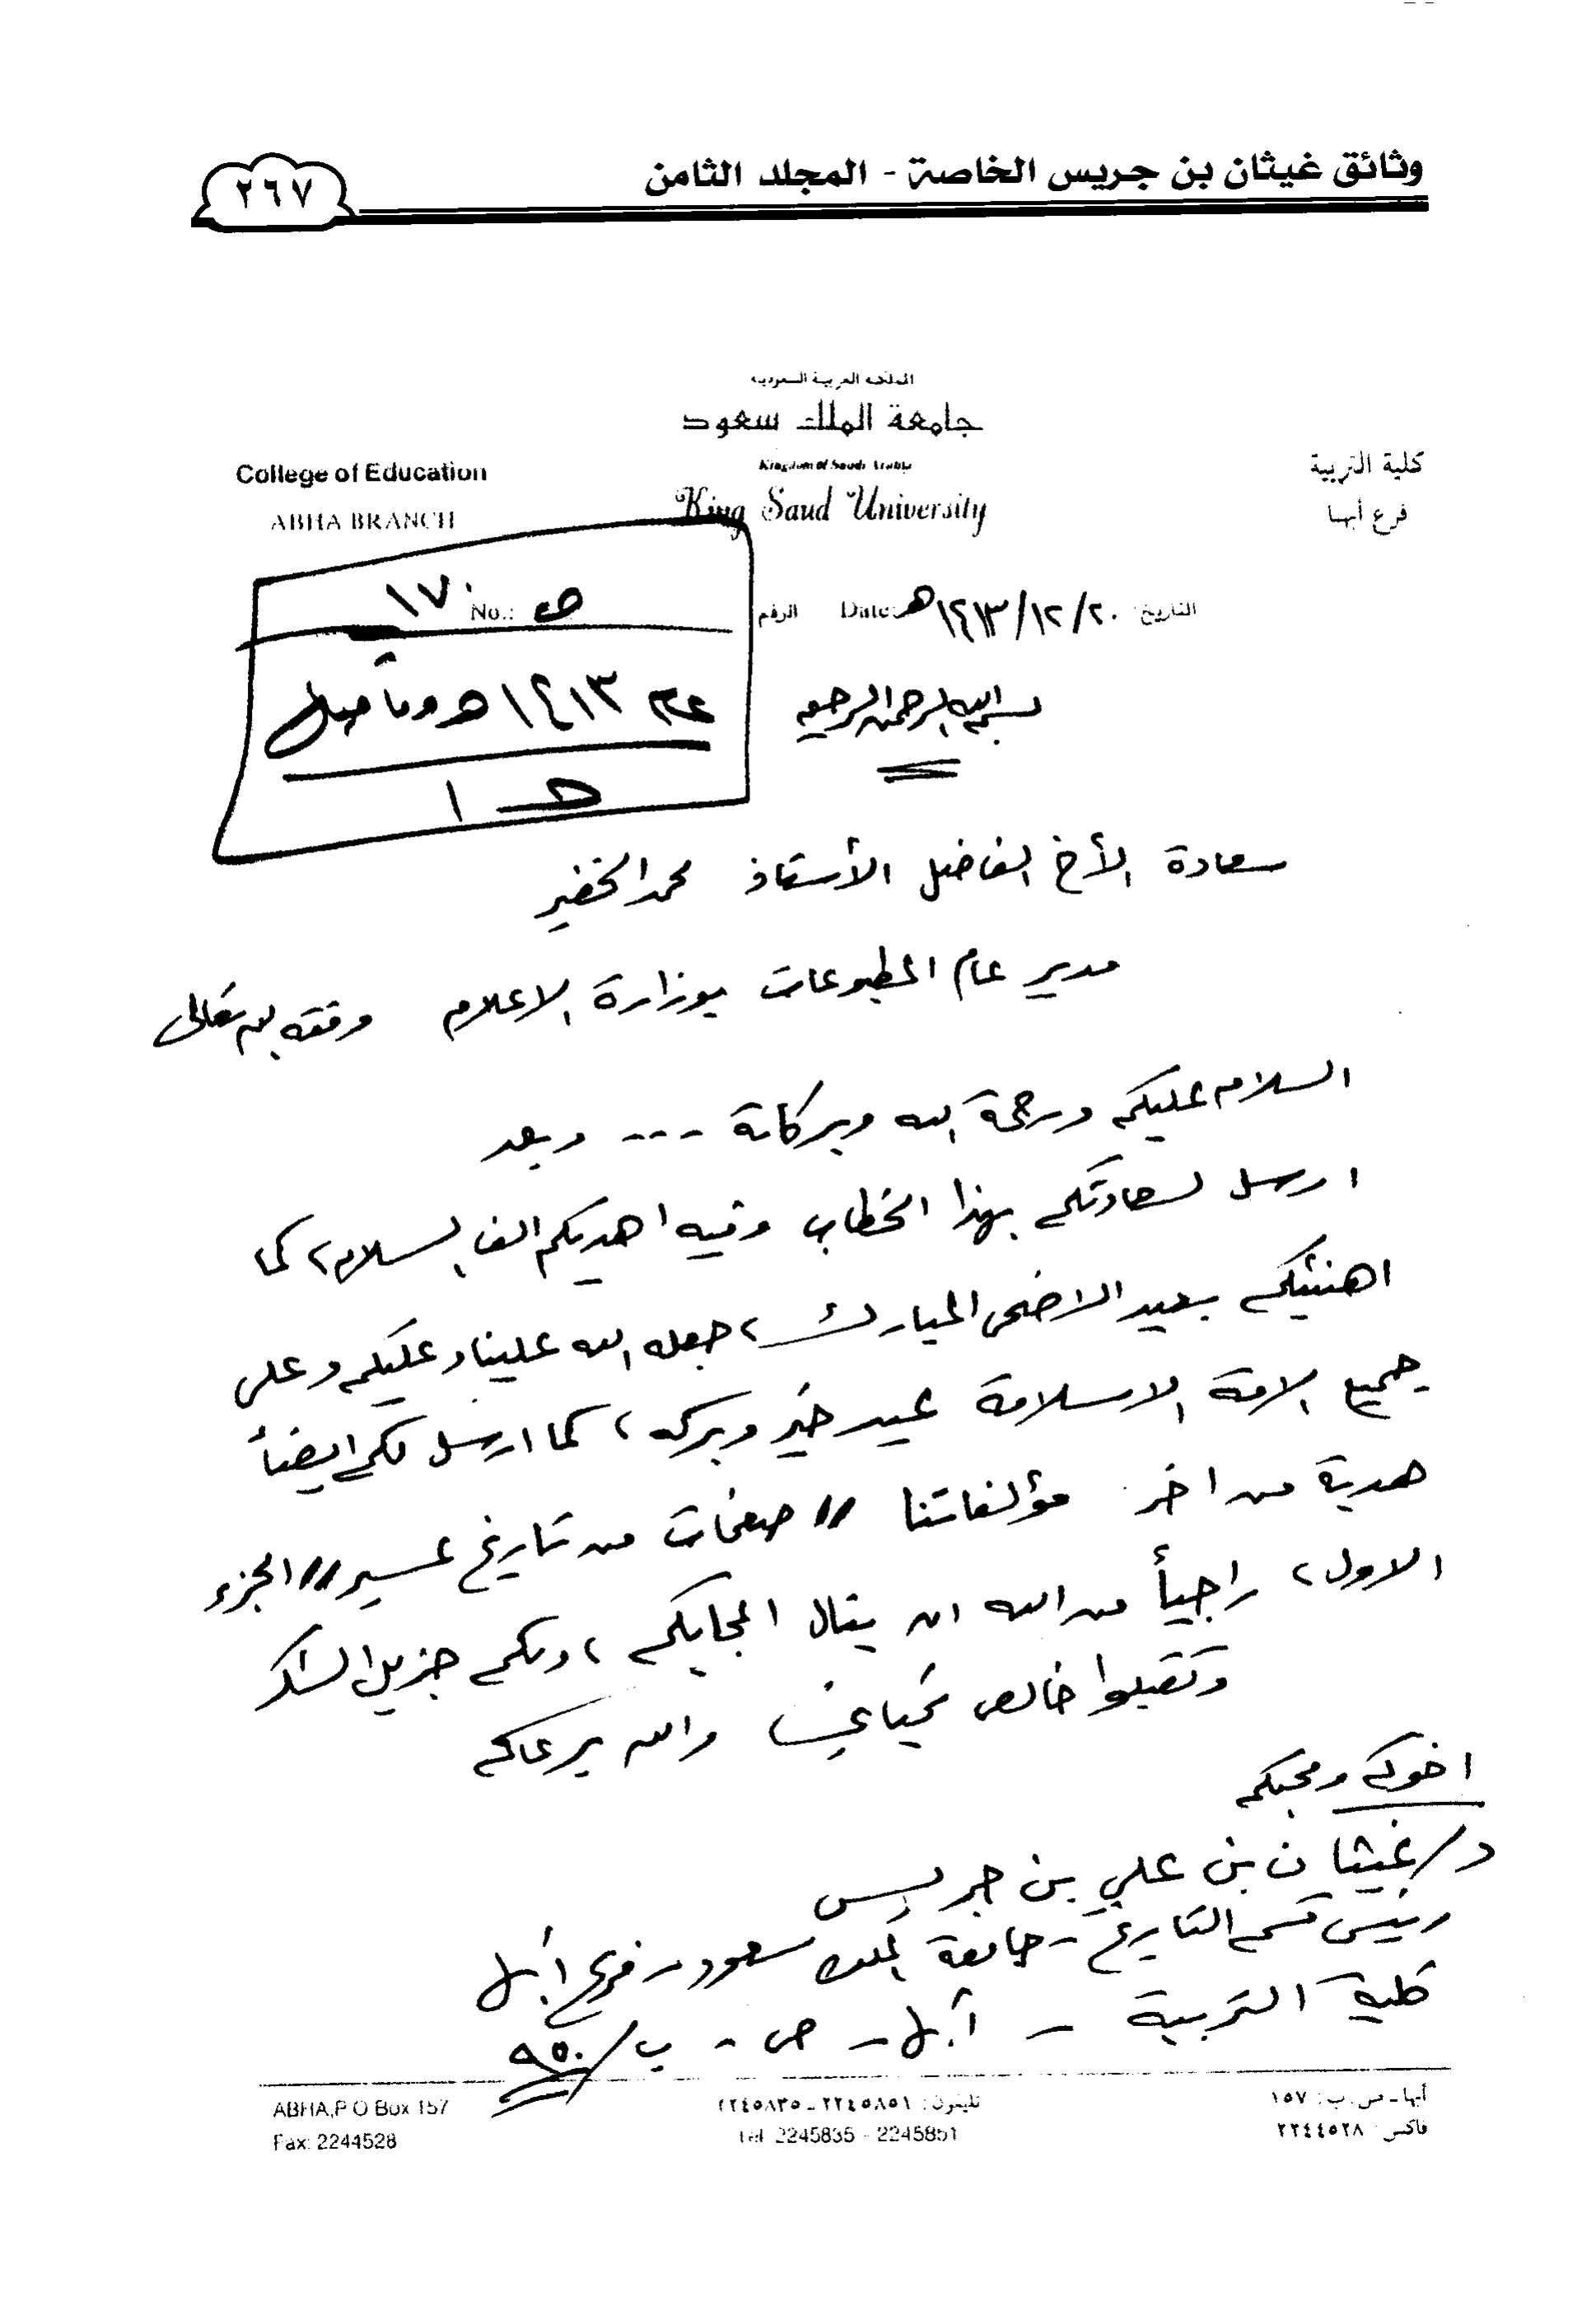 وثائق غيثان بن جريس الخاصة - المجلد الثامن
٢٦٧
المملكة العربية السعودية
جامعة الملك سعود
Kingdom of Saudi Arabia
King Saud University
كلية التربية
فرع أبها
College of Education
ABHA BRANCH
التاريخ: ٢٠/١٢/١٤١٣هـ Date:
الرقم No.: ص ١٧٠
١٤١٣هـ وما قبل
بسم الله الرحمن الرحيم
سعادة الأخ الفاضل الأستاذ محمد الخضير
مدير عام المطبوعات بوزارة الاعلام وفقه الله تعالى
السلام عليكم ورحمة الله وبركاتة --- وبعد
ارسل لسعادتكم بهذا الخطاب وفيه اهديكم الف السلام، كما
اهنئيكم بعيد الاضحى المبارك، جعله الله علينا وعليكم وعلى
جميع الامة الاسلامة عيد خير وبركه، كما ارسل لكم ايضاً
هدية من اخر مؤلفاتنا // صفحات من تاريخ عسير // الجزء
الاول، راجياً من الله ان ينال اعجابكم، ولكم جزيل الشكر
وتقبلوا خالص تحياتي والله يرعاكم
اخوكم ومحبكم
د/ غيثان بن علي بن جريس
رئيس قسم التاريخ - جامعة الملك سعود - فرع أبها
كلية التربية - أبها - ص - ب / ٩٥٠
أبها - ص. ب: ١٥٧
فاكس: ٢٢٤٤٥٢٨
تليفون: ٢٢٤٥٨٥١ - ٢٢٤٥٨٣٥
Tel: 2245835 - 2245851
ABHA,P O Box 157
Fax: 2244528